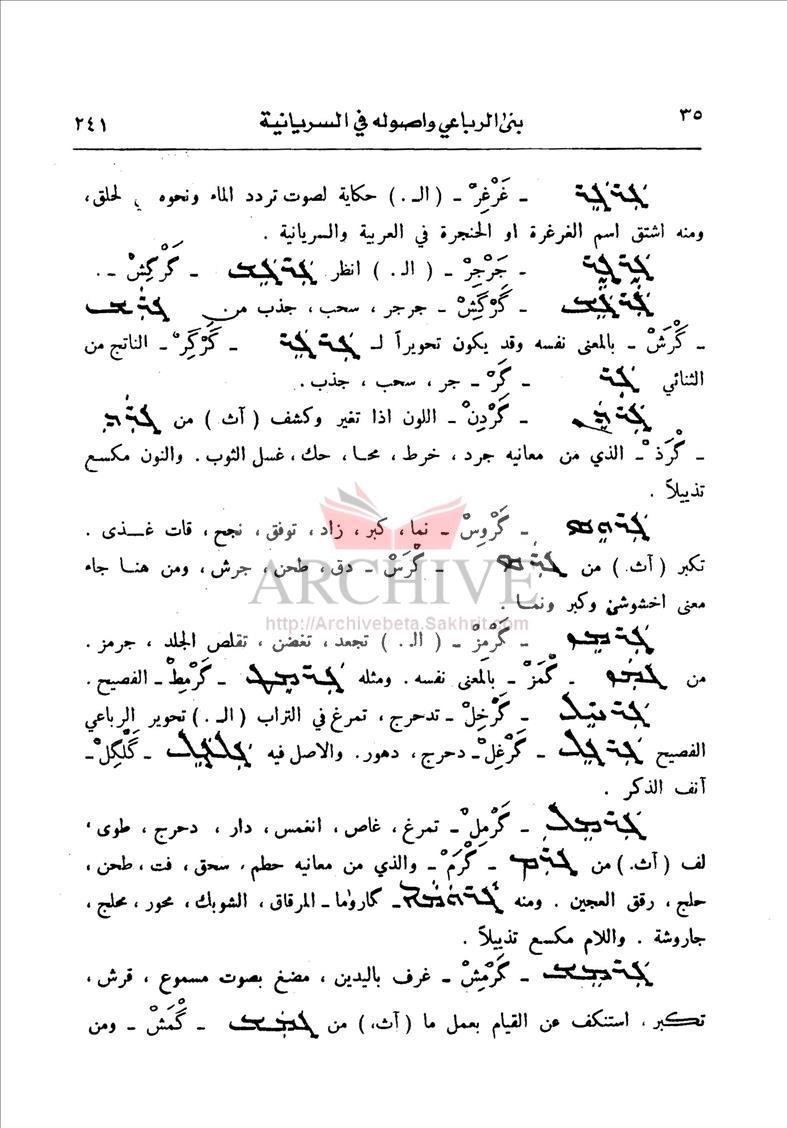 ٣٥ بنى الرباعي واصوله في السريانية ٢٤١
ܓܪܓܪ ـ غَرْغِرْ ـ ( الـ . ) حكاية لصوت تردد الماء ونحوه لحلق ،
ومنه اشتق اسم الغرغرة او الحنجرة في العربية والسريانية .
ܓܪܓܪ ـ جَرْجِرْ ـ ( الـ . ) انظر ܓܪܓܫ ـ گَرْگِشْ ـ .
ܓܪܓܫ ـ گَرْگَشْ ـ جرجر ، سحب ، جذب من ܓܪܫ
ـ گْرَشْ ـ بالمعنى نفسه وقد يكون تحويراً لـ ܓܪܓܪ ـ گَرْگِرْ ـ الناتج من
الثنائي ܓܪ ـ گَرْ ـ جر ، سحب ، جذب .
ܓܪܕܢ ـ گَرْدِنْ ـ اللون اذا تغير وكشف ( آث . ) من ܓܪܕ
ـ گْرَذْ ـ الذي من معانيه جرد ، خرط ، محا ، حك ، غسل الثوب . والنون مكسع
تذييلاً .
ܓܪܘܣ ـ گَرْوِسْ ـ نما ، كبر ، زاد ، توفق ، نجح ، قات غـذى .
تكبر ( آث . ) من ܓܪܣ ـ گْرَسْ ـ دق ، طحن ، جرش ، ومن هنا جاء
معنى اخشوشن وكبر ونما .
ܓܪܡܙ ـ گَرْمِزْ ـ ( الـ . ) تجعد ، تغضن ، تقلص الجلد ، جرمز .
من ܓܡܙ ـ گْمَزْ ـ بالمعنى نفسه . ومثله ܓܪܡܛ ـ گَرْمِطْ ـ الفصيح .
ܓܪܚܠ ـ گَرْخِلْ ـ تدحرج ، تمرغ في التراب ( الـ . ) تحوير الرباعي
الفصيح ܓܪܓܠ ـ گَرْغِلْ ـ دحرج ، دهور . والاصل فيه ܓܠܓܠ ـ گَلْگِلْ ـ
آنف الذكر .
ܓܪܡܠ ـ گَرْمِلْ ـ تمرغ ، غاص ، انغمس ، دار ، دحرج ، طوى ،
لف ( آث . ) من ܓܪܡ ـ گْرَمْ ـ والذي من معانيه حطم ، سحق ، فت ، طحن ،
حلج ، رقق العجين . ومنه ܓܪܘܡܐ ـ گاروما ـ المرقاق ، الشوبك ، محور ، محلج ،
جاروشة . واللام مكسع تذييلاً .
ܓܪܡܫ ـ گَرْمِشْ ـ غرف باليدين ، مضغ بصوت مسموع ، قرش ،
تكبر ، استنكف عن القيام بعمل ما ( آث . ) من ܓܡܫ ـ گْمَشْ ـ ومن
ARCHIVE
http://Archivebeta.Sakhrit.com